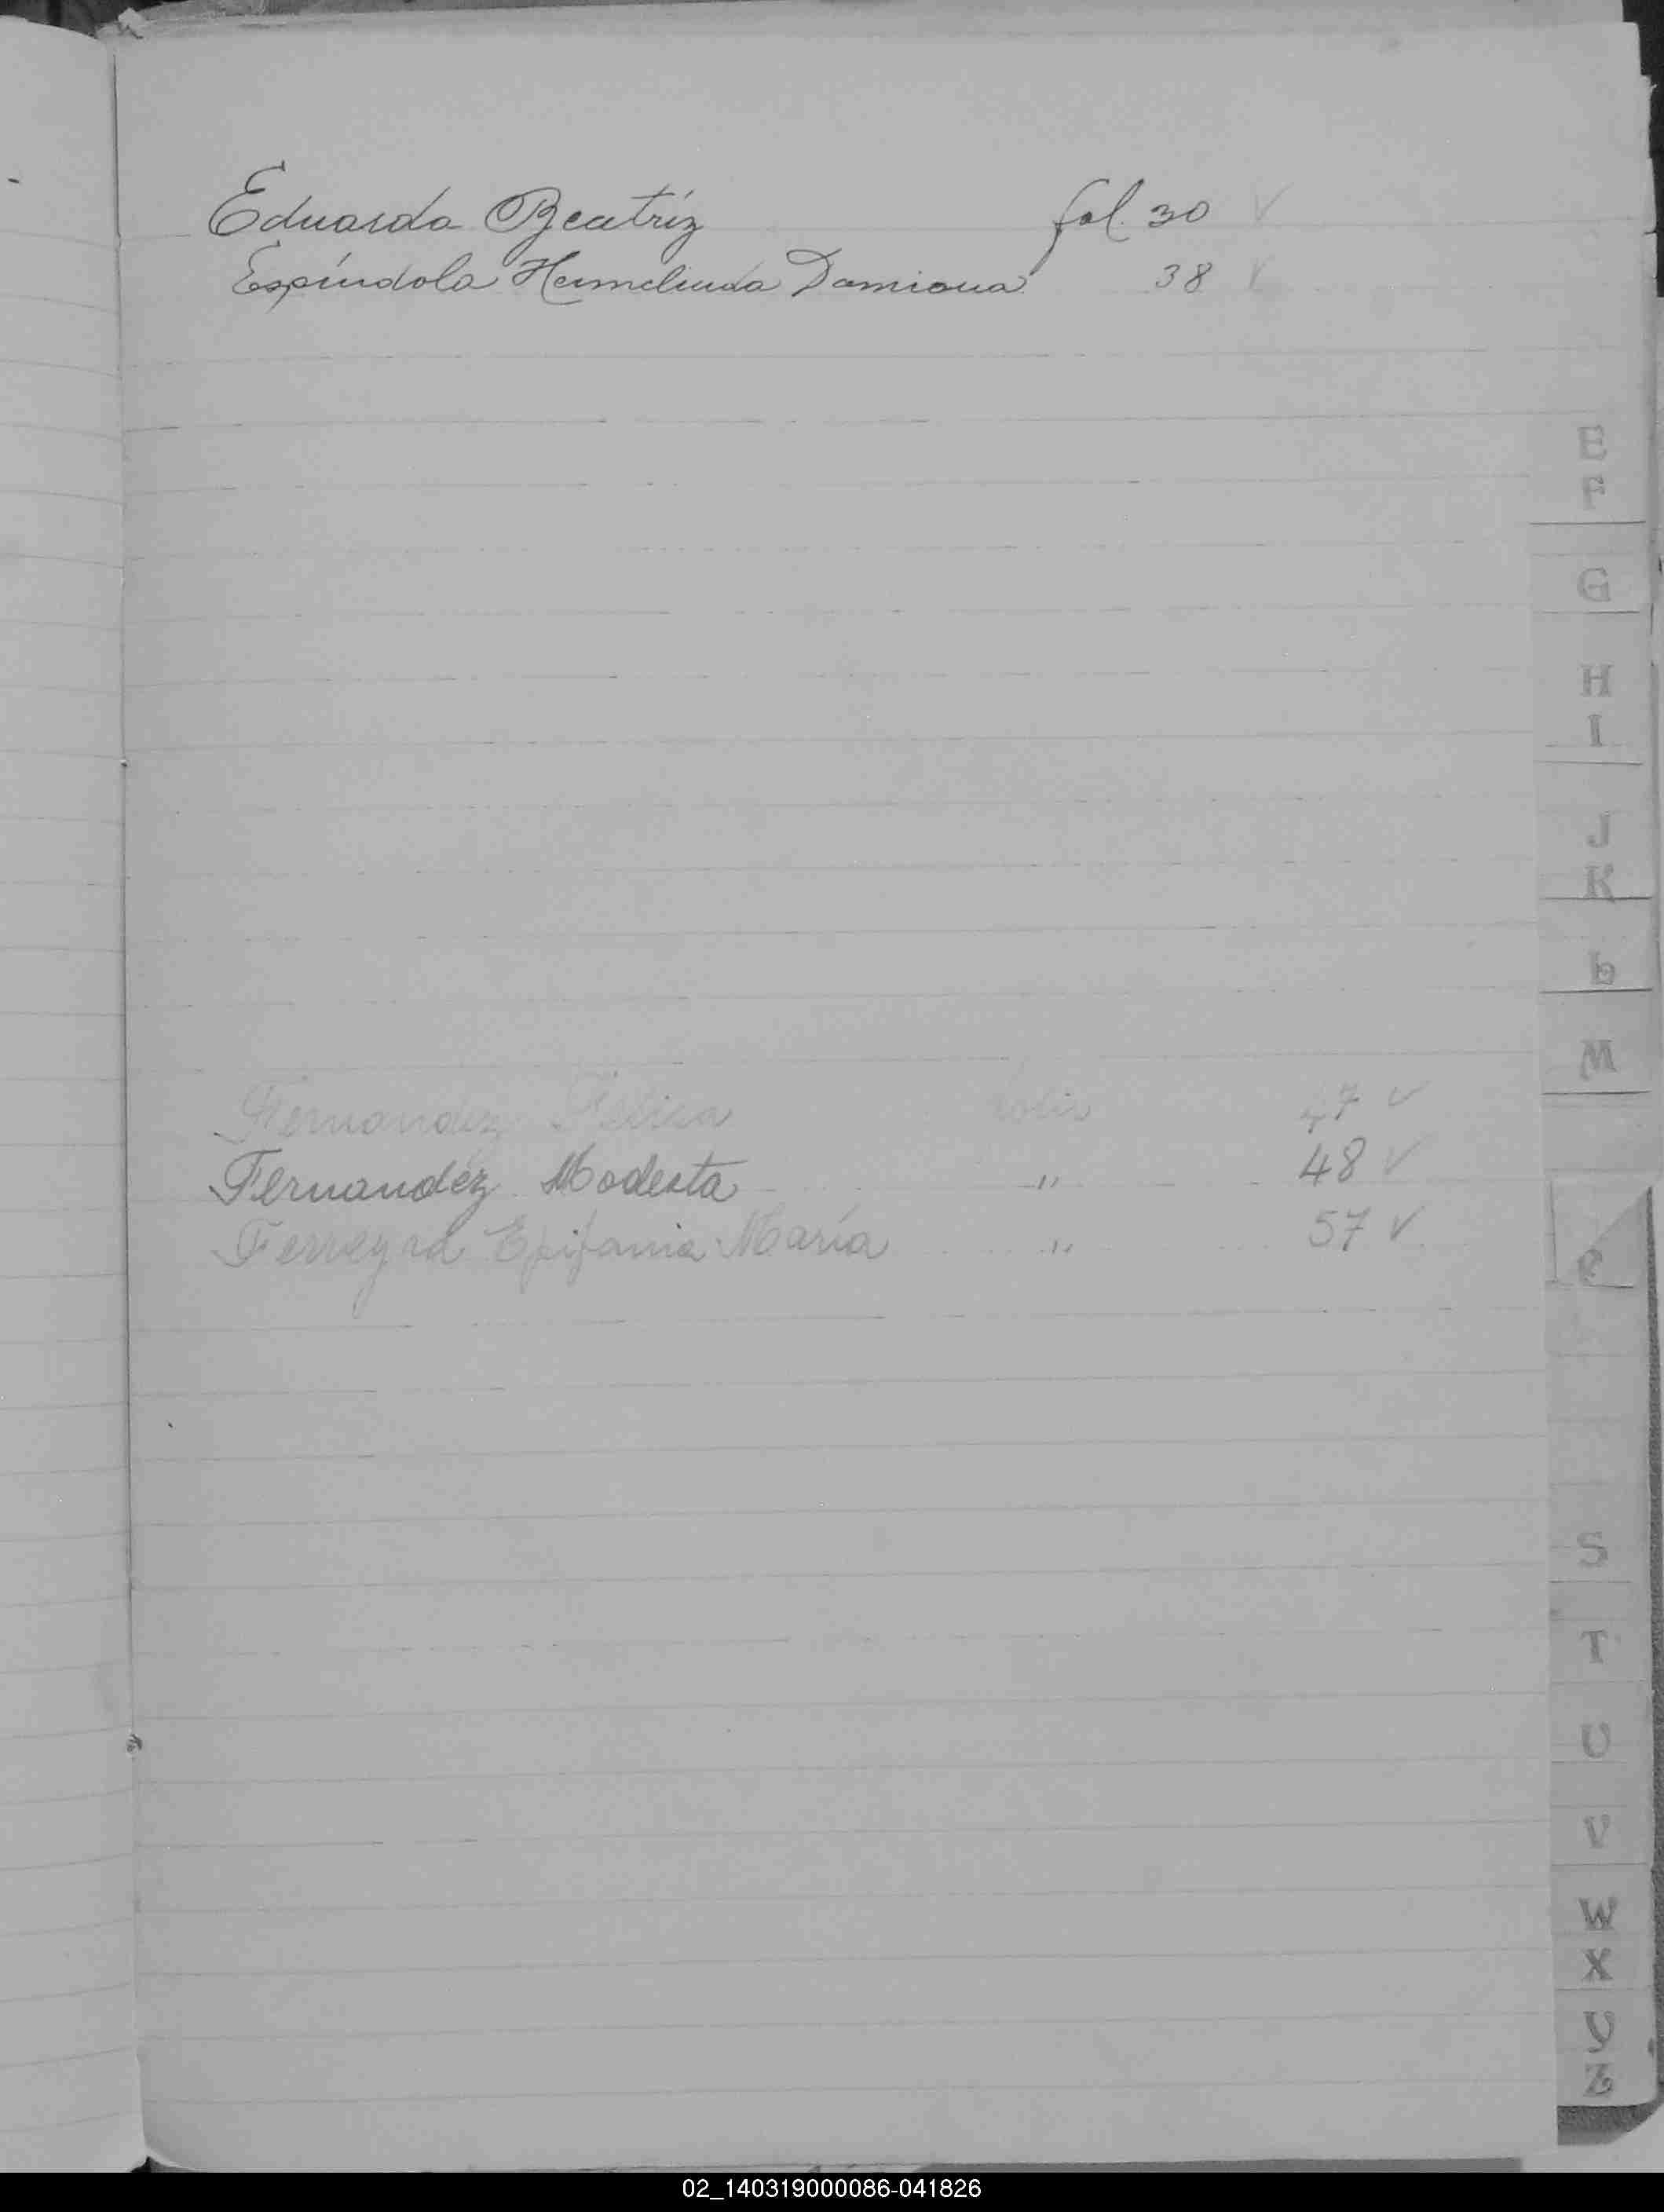 Eduarda Beatríz fol. 30 V
Espíndola Hermelinda Damiana 38 V
E
F
G
H
I
J
K
L
M
Fernandez Felisa folio 47 V
Fernandez Modesta " 48 V
Ferreyra Epifania María " 57 V
S
T
U
V
W
X
Y
Z
02_140319000086-041826